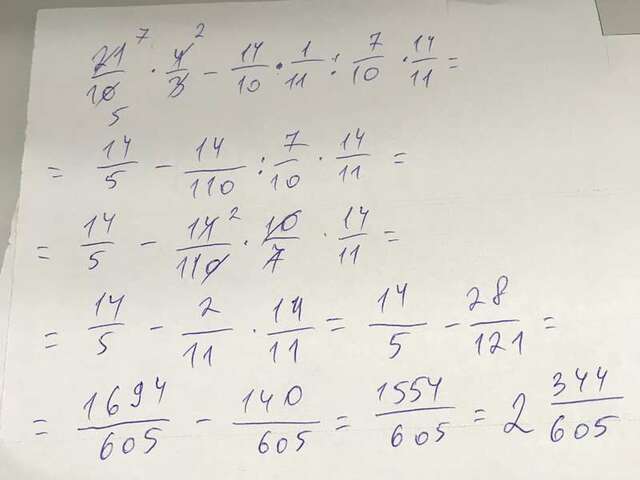 21/10 7/5 · 4/3 2 - 14/10 · 1/11 : 7/10 · 14/11 =
= 14/5 - 14/110 : 7/10 · 14/11 =
= 14/5 - 14/110 2 · 10/7 · 14/11 =
= 14/5 - 2/11 · 14/11 = 14/5 - 28/121 =
= 1694/605 - 140/605 = 1554/605 = 2 344/605